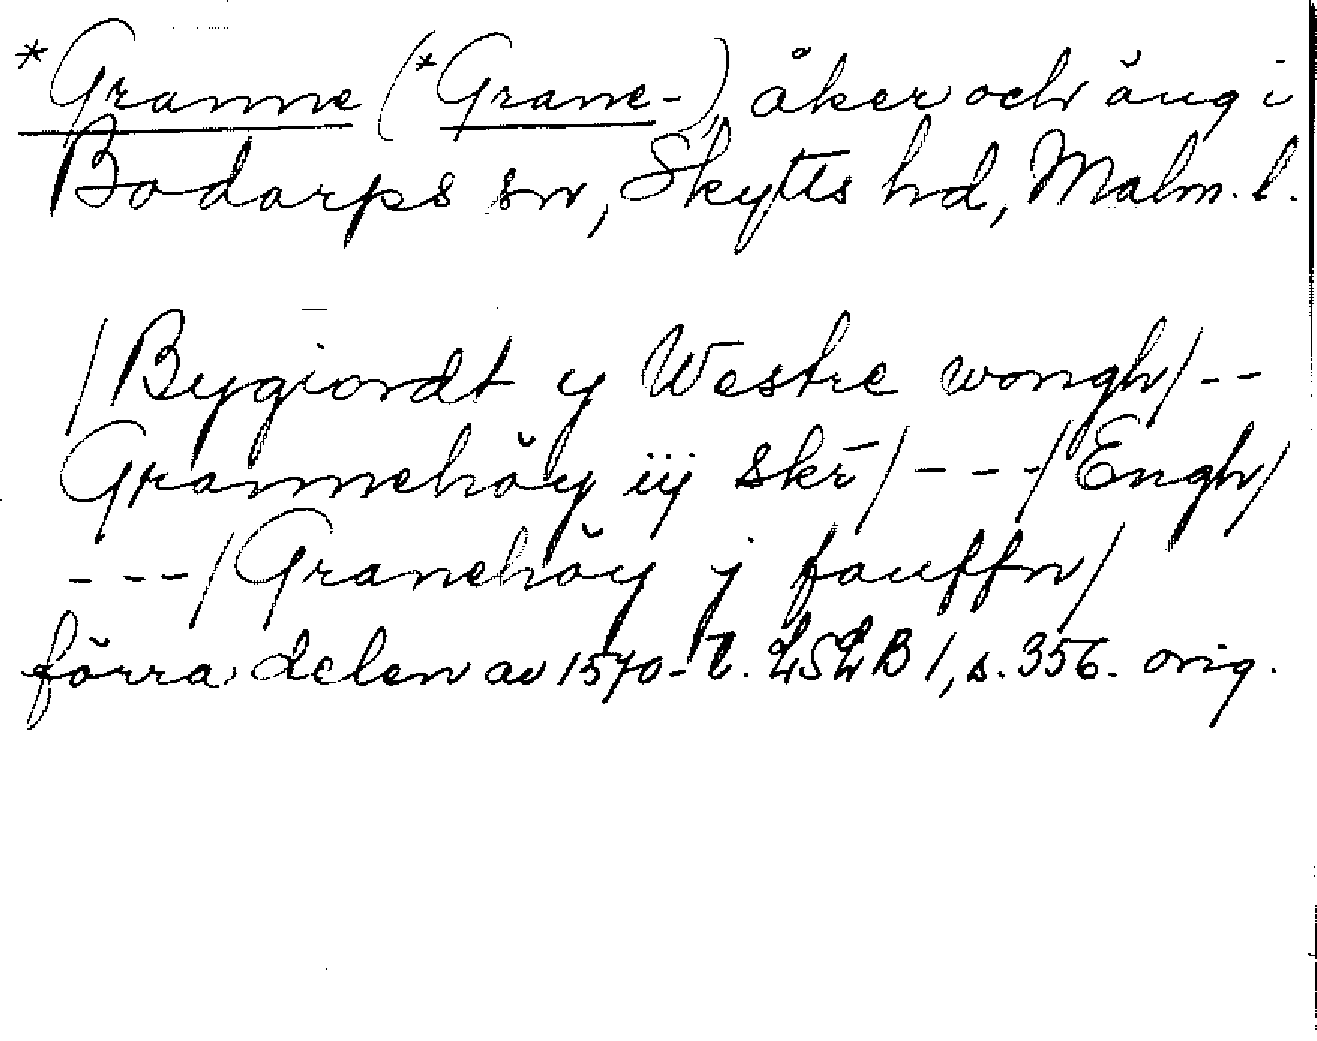 *Granne (*Grane-), åker och äng i
Bodarps sn, Skytts hd, Malm. l.
/Bygiordt y Westre wongh/--
Grannehöy iij skr̄/---/Engh/
---/Granehöy j fauffn/
förra delen av 1570-t. LSLB 1, s. 356. orig.